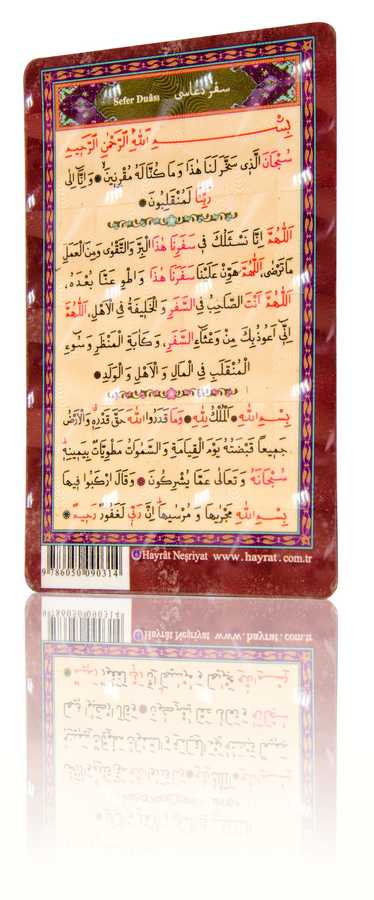 Sefer Duâsı سفر دعاسی
بِسْمِ اللّٰهِ الرَّحْمٰنِ الرَّحِيمِ
سُبْحَانَ الَّذِى سَخَّرَ لَنَا هٰذَا وَمَا كُنَّا لَهُ مُقْرِنِينَ ۞ وَاِنَّا اِلٰى
رَبِّنَا لَمُنْقَلِبُونَ ۞
اَللّٰهُمَّ اِنَّا نَسْئَلُكَ فِى سَفَرِنَا هٰذَا الْبِرَّ وَالتَّقْوٰى وَمِنَ الْعَمَلِ
مَا تَرْضٰى، اَللّٰهُمَّ هَوِّنْ عَلَيْنَا سَفَرَنَا هٰذَا وَاطْوِ عَنَّا بُعْدَهُ،
اَللّٰهُمَّ اَنْتَ الصَّاحِبُ فِى السَّفَرِ وَالْخَلِيفَةُ فِى الْاَهْلِ، اَللّٰهُمَّ
اِنِّى اَعُوذُ بِكَ مِنْ وَعْثَاءِ السَّفَرِ، وَكَابَةِ الْمَنْظَرِ وَسُوءِ
الْمُنْقَلَبِ فِى الْمَالِ وَالْاَهْلِ وَالْوَلَدِ ۞
بِسْمِ اللّٰهِ ۞ اَلْمُلْكُ لِلّٰهِ ۞ وَمَا قَدَرُوا اللّٰهَ حَقَّ قَدْرِهِ وَالْاَرْضُ
جَمِيعًا قَبْضَتُهُ يَوْمَ الْقِيَامَةِ وَالسَّمٰوَاتُ مَطْوِيَّاتٌ بِيَمِينِهِ
سُبْحَانَهُ وَتَعَالٰى عَمَّا يُشْرِكُونَ ۞ وَقَالَ ارْكَبُوا فِيهَا
بِسْمِ اللّٰهِ مَجْرٰيهَا وَمُرْسٰيهَا اِنَّ رَبِّى لَغَفُورٌ رَحِيمٌ ۞
9 786050 090314 Hayrât Neşriyat www.hayrat.com.tr